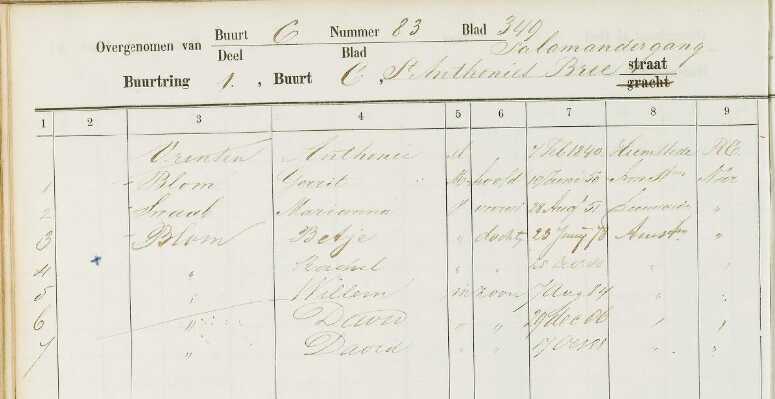 Overgenomen van Buurt C Nummer 83 Blad 349
Deel Blad Salamandergang
Buurtring 1. , Buurt C , St Anthonies Bree straat
gracht
1 2 3 4 5 6 7 8 9
Anthonie M 1840. Heemstede RC
1 Blom Gerrit M hoofd 50
2 Snaab Marianna V vrouw 28 Aug 51 "
3 Blom Betje " dochter 23 Juny 78 Amstm "
4 " Rachel " " " "
5 " Willem m zoon 7 Aug 84 " "
6 " David " " 29 Dec 86 " "
7 " David " " 17 " "